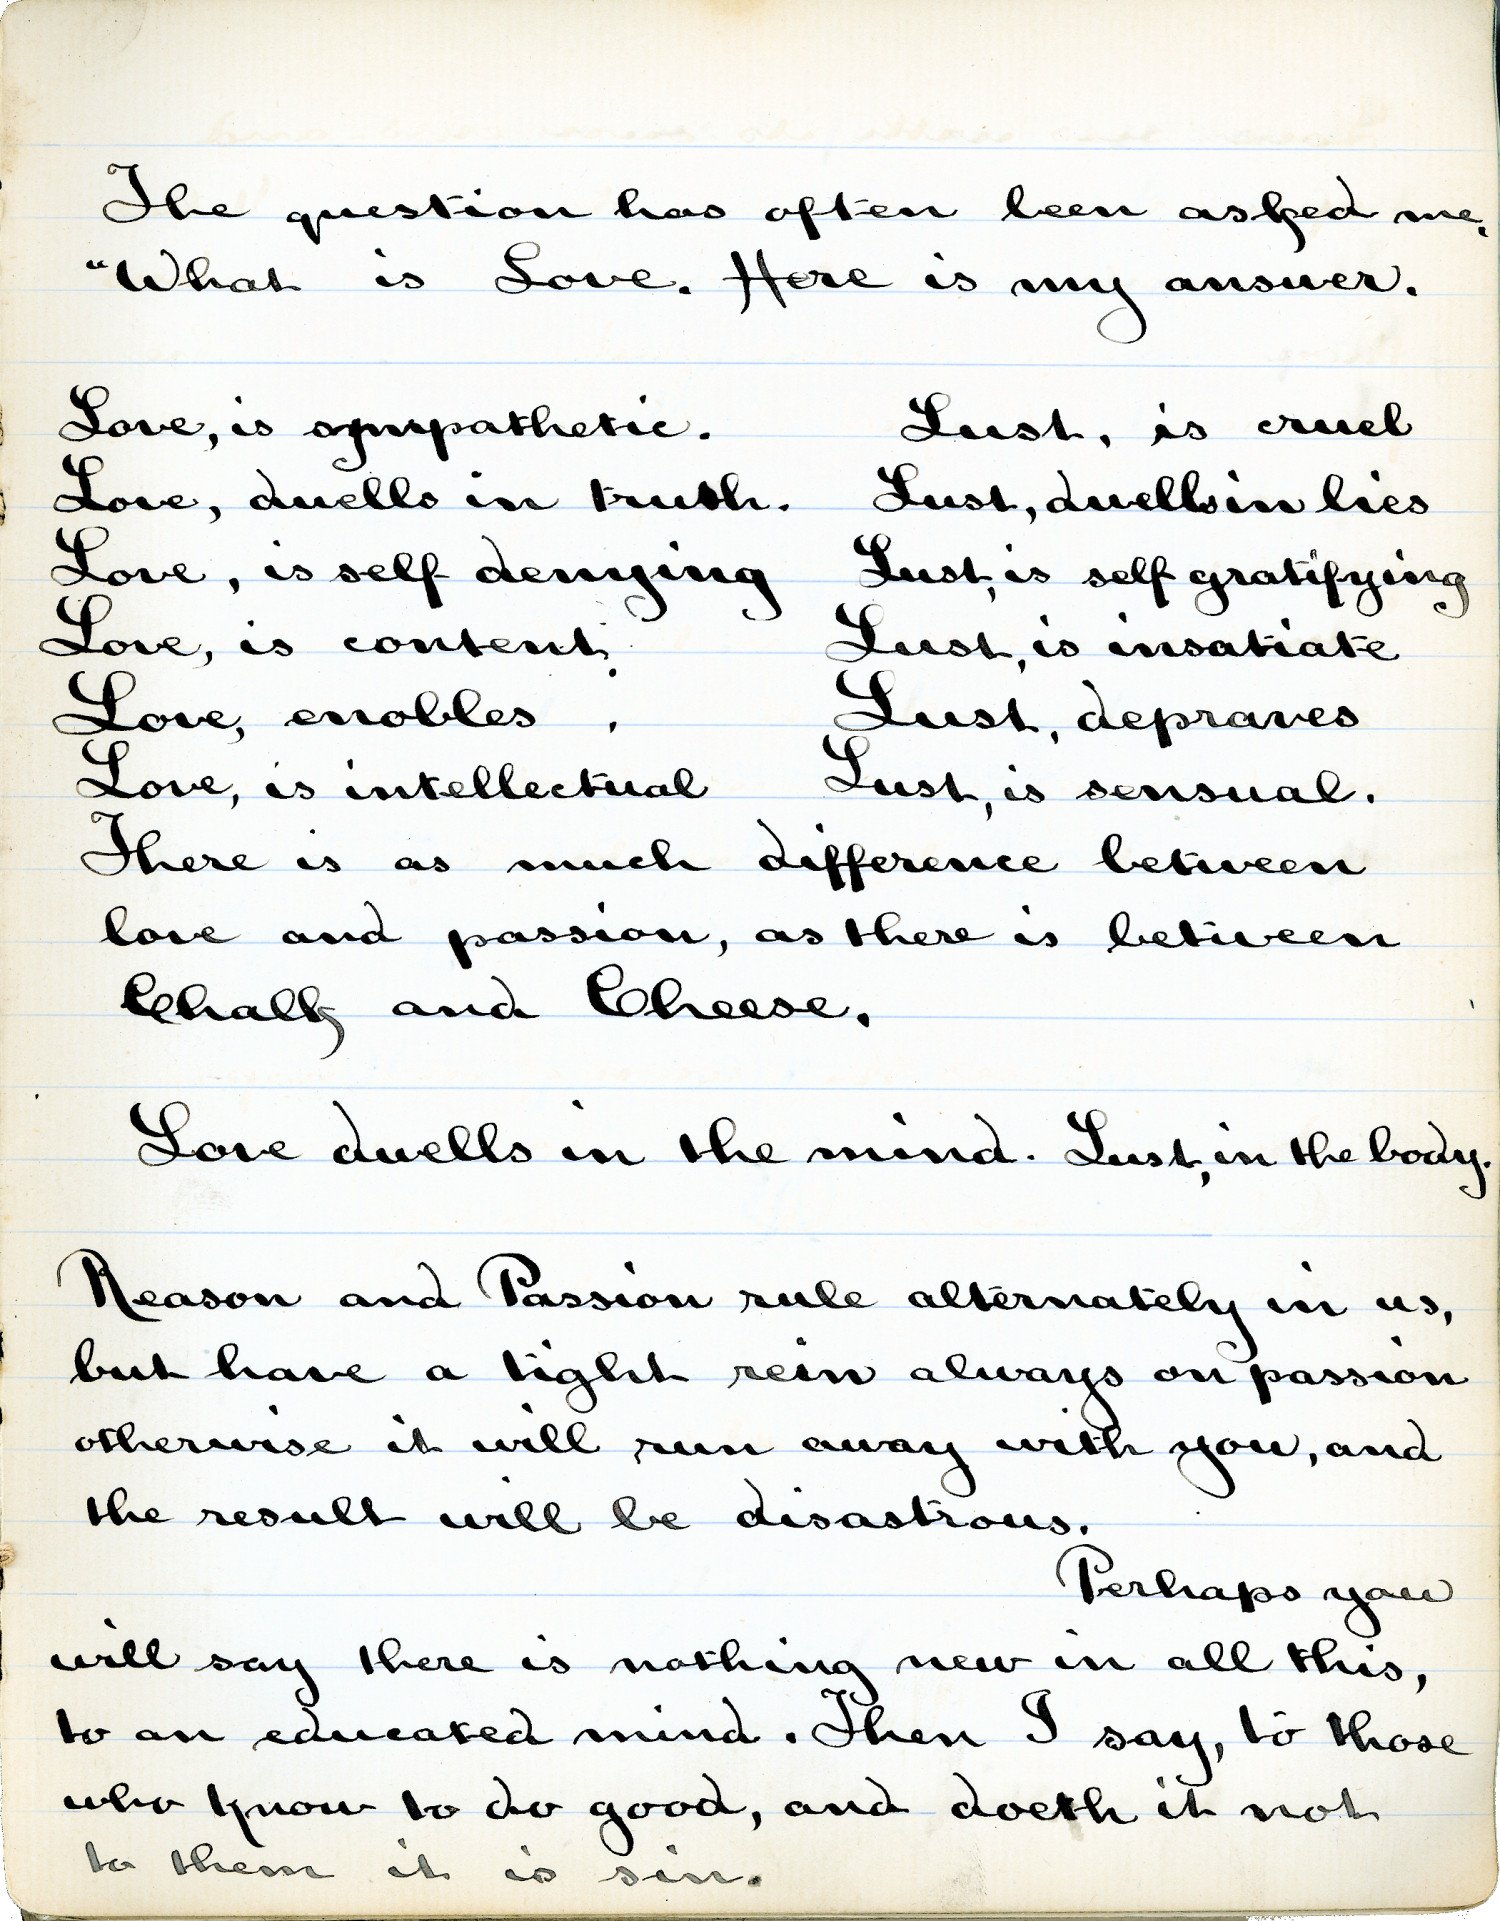 The question has often been asked me,
"What is Love. Here is my answer.
Love, is sympathetic. Lust, is cruel
Love, dwells in truth. Lust, dwells in lies
Love, is self denying Lust, is self gratifying
Love, is content. Lust, is insatiate
Love, enobles . Lust, depraves
Love, is intellectual Lust, is sensual.
There is as much difference between
love and passion, as there is between
Chalk and Cheese.
Love dwells in the mind. Lust, in the body.
Reason and Passion rule alternately in us,
but have a tight rein always on passion
otherwise it will run away with you, and
the result will be disastrous.
Perhaps you
will say there is nothing new in all this,
to an educated mind. Then I say, to those
who know to do good, and doeth it not
to them it is sin.